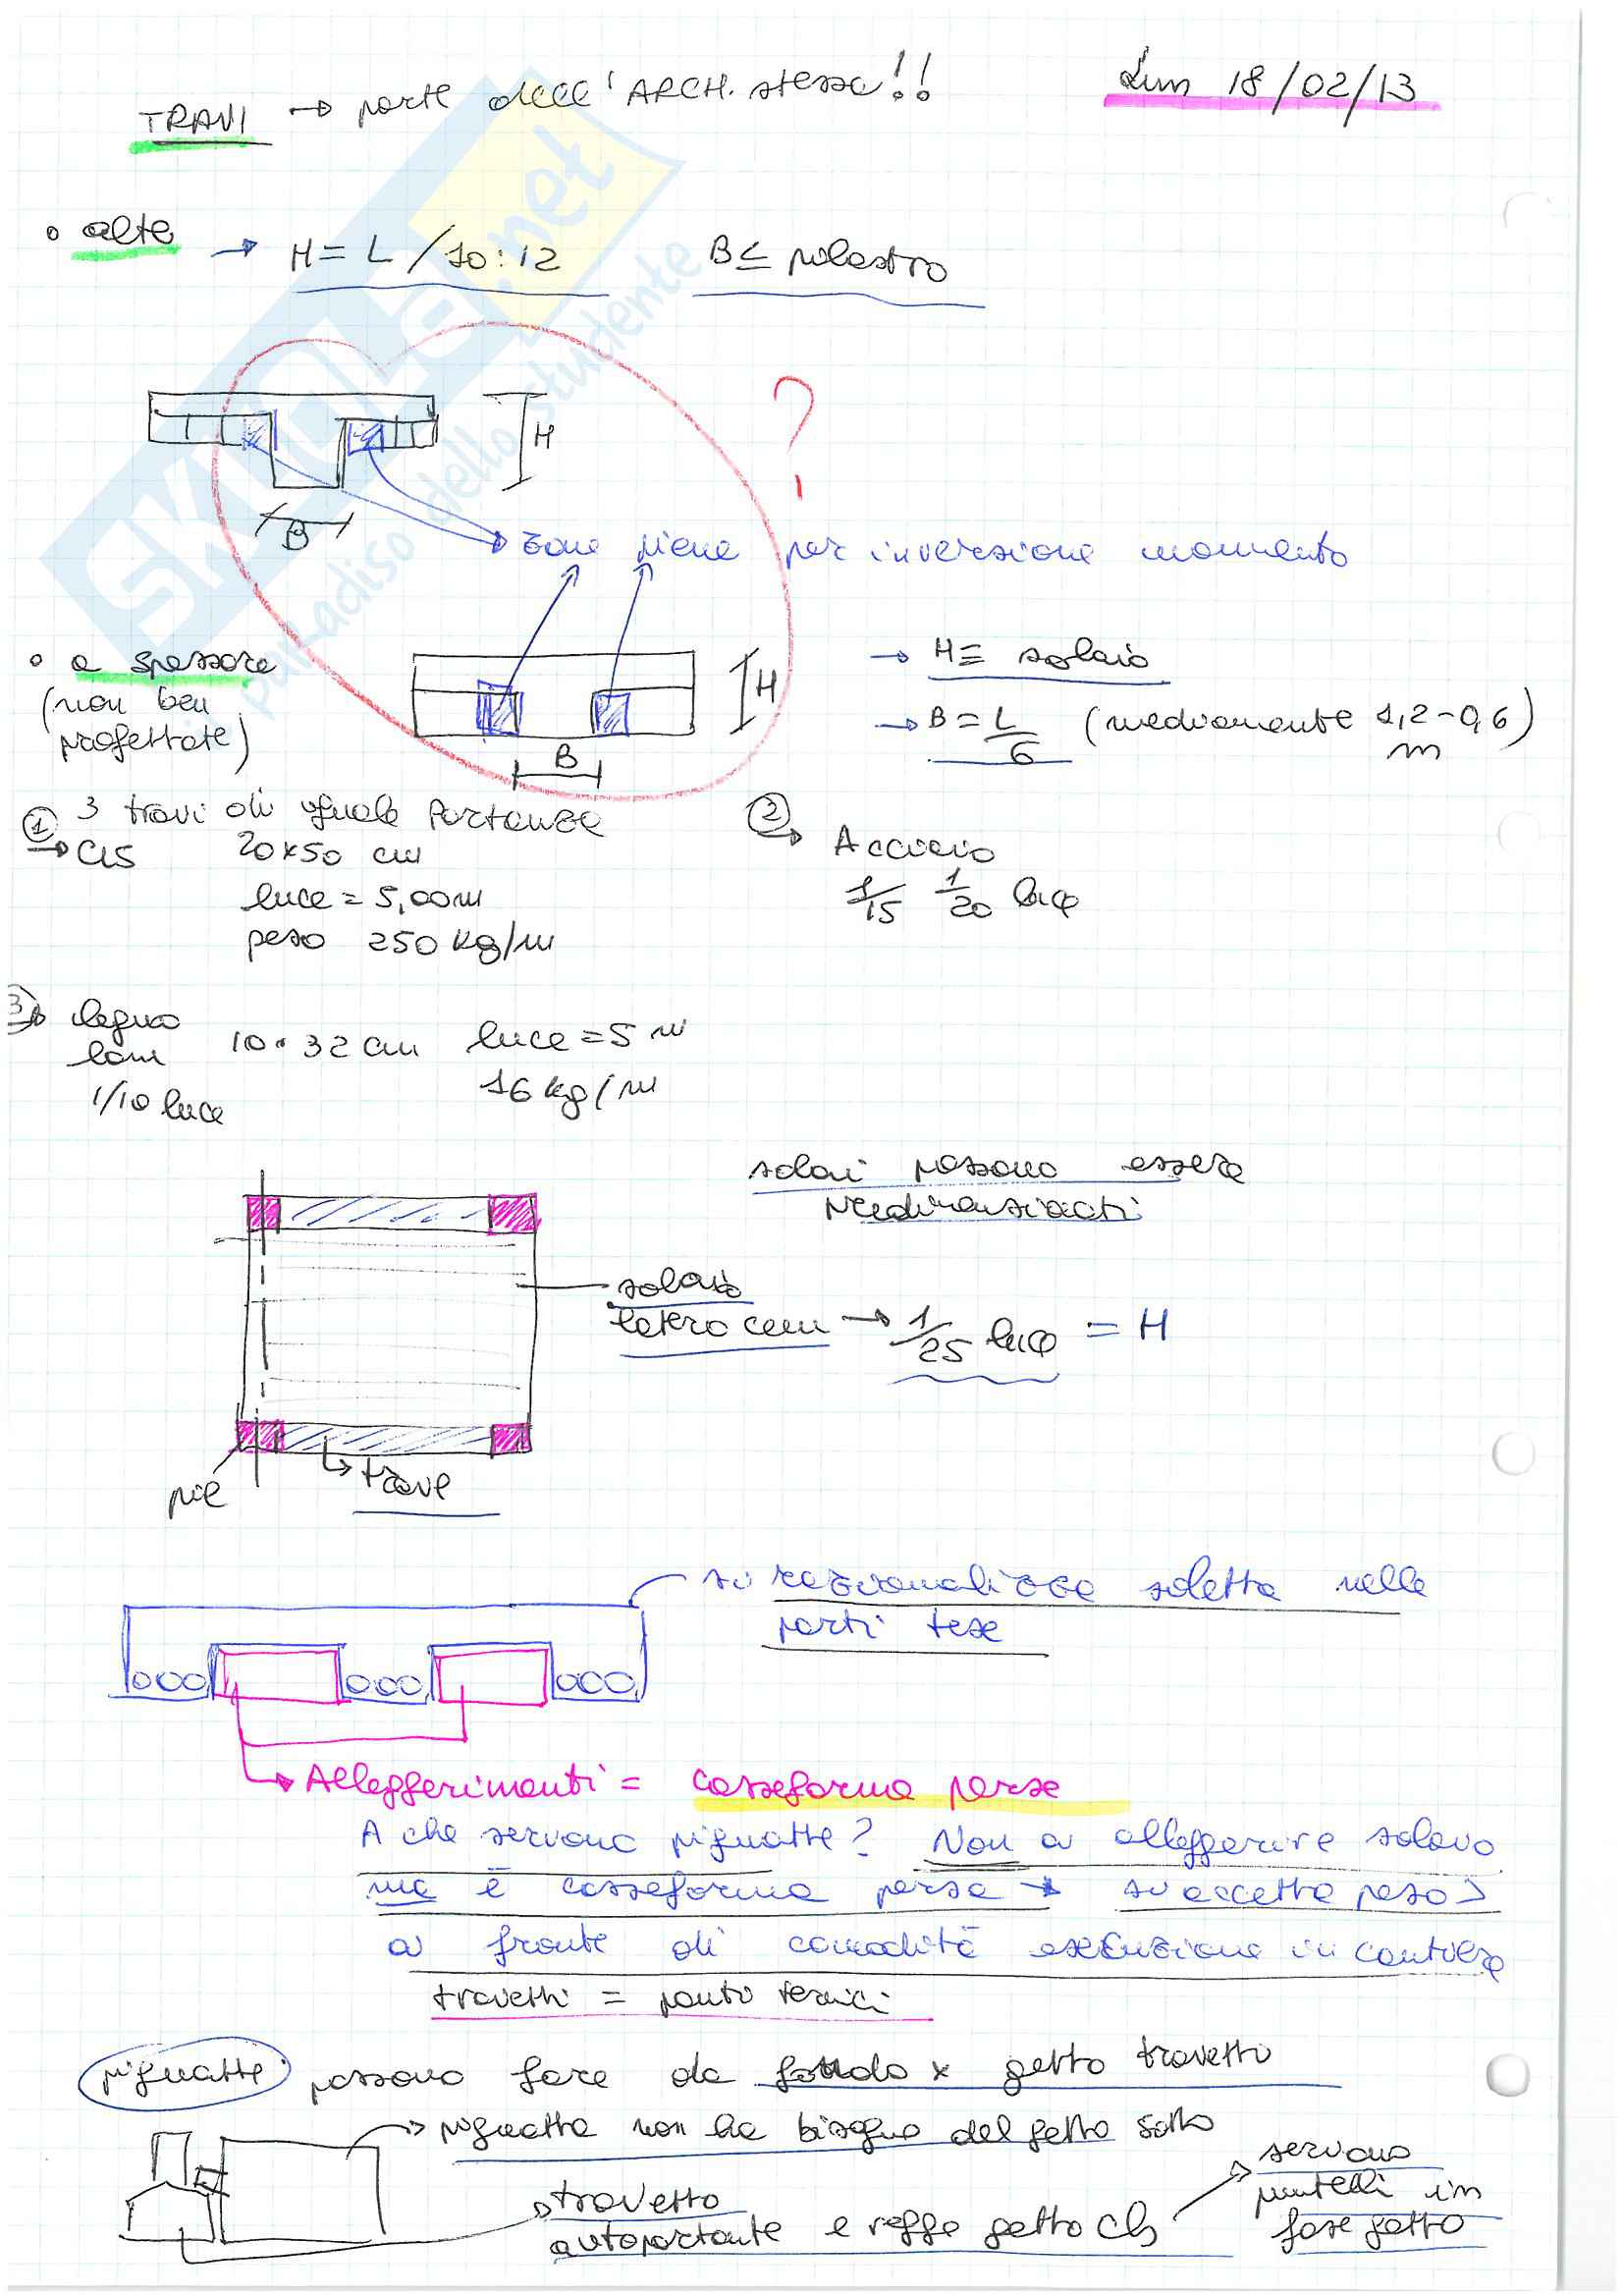 TRAVI → parte dell'ARCH. stessa!!
Lun 18/02/13
• alte → H = L/10:12 B ≤ pilastro
H
B
?
zone piene per inversione momento
• a spessore
(non ben
progettate)
H
B
→ H ≡ solaio
→ B = L/6 (mediamente 1,2-0,6)
m
① 3 travi di uguale portanza
→ cls 20x50 cm
luce = 5,00 m
peso 250 kg/m
② → Acciaio
1/15 1/20 luce
3) → legno 10 • 32 cm luce = 5 m
lam 16 kg/m
1/10 luce
solai possono essere
predimensionati
solaio
latero cem → 1/25 luce = H
pil
trave
si razionalizza soletta nelle
parti tese
→ Alleggerimenti = cassaforma persa
A che servono pignatte? Non a alleggerire solaio
ma è cassaforma persa → si accetta peso >
a fronte di comodità esecuzione in cantiere
travetti = ponti termici
pignatte possono fare da fondo x getto travetti
→ pignatta non ha bisogno del getto sotto
→ travetto
autoportante e regge getto cls
servono
puntelli in
fase getto
SKUOLA.net
il paradiso dello studente